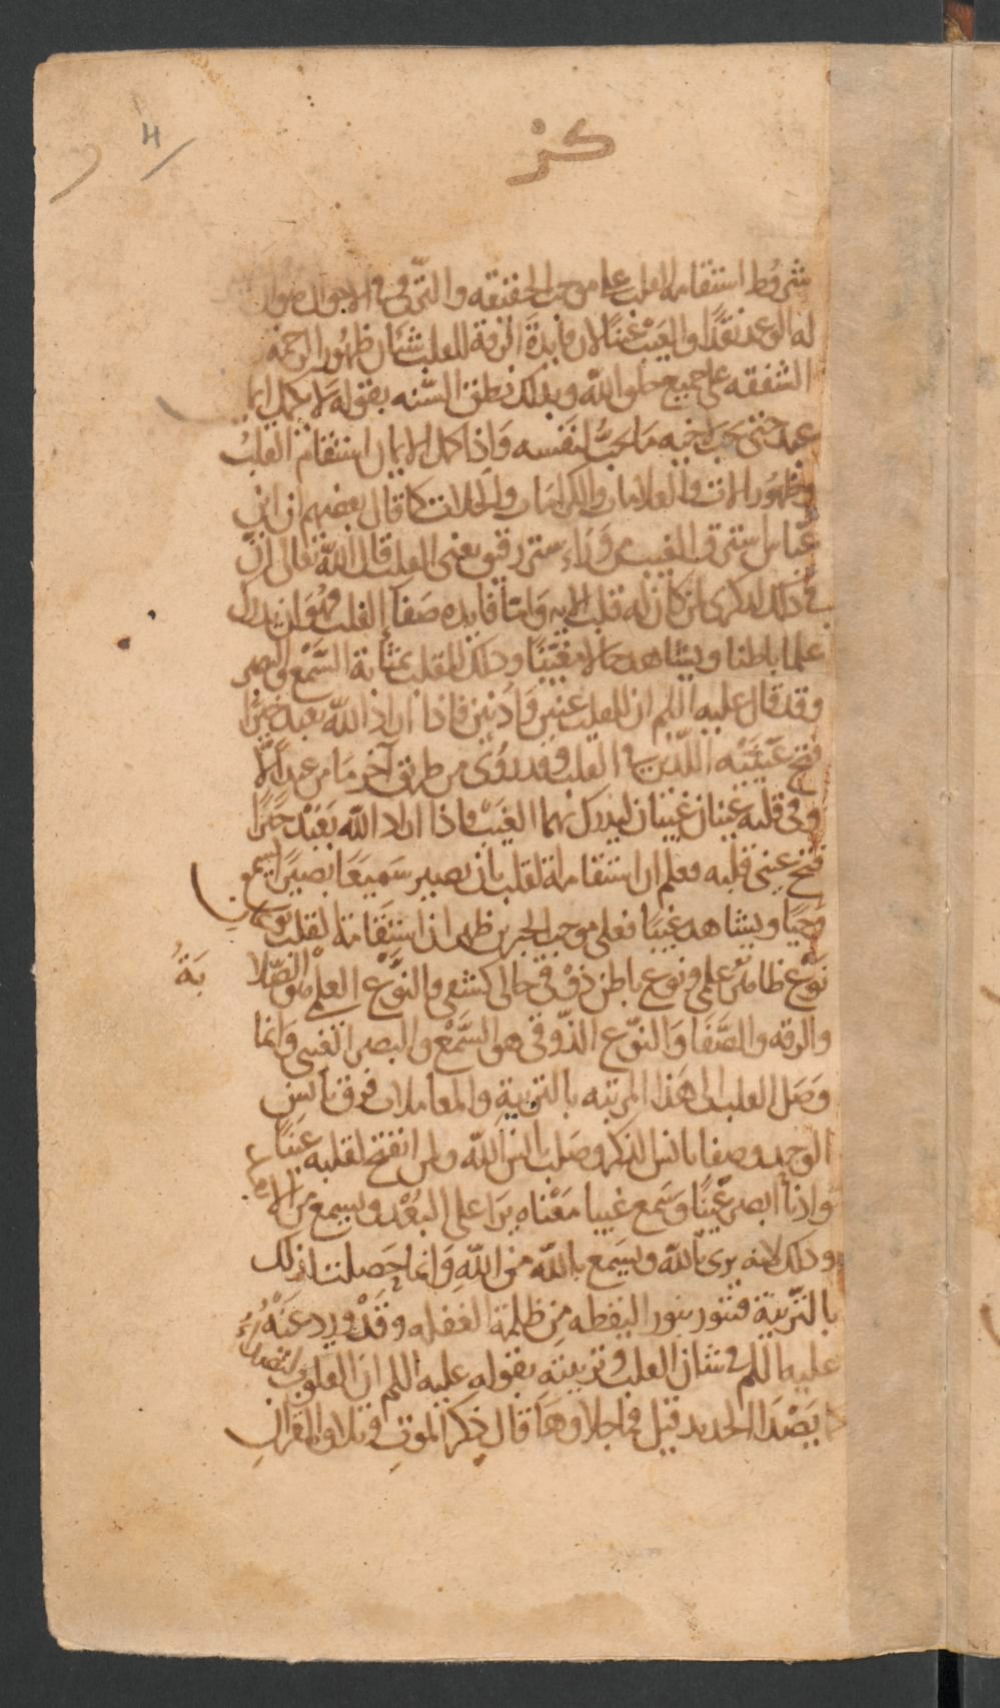 4
كز
شروط استقامة القلب على موجب الحقيقه والترقى فى الاحوال
له الوعد نقدا والغيب عينا لان فايدة الرقة للقلب شان ظهور الرحمة
الشفقه على جميع خلق الله وبذلك نطق السنه بقوله لا يكمل ايمان
عبد حتى يحب لاخيه ما يحب لنفسه واذا كمل الايمان استقام القلب
وظهور الايات والعلامات والكرامات والحالات كما قال بعضهم ان ابن
عباس ستر فى الغيب من وراء ستر رقيق يعنى القلب قال الله تعالى ان
فى ذلك لذكرى لمن كان له قلب الايه واما فايده صفا القلب فهو ان يدرك
علما باطنا ويشاهد حالا مغيبا وذلك للقلب بمثابة السمع والبصر
وقد قال عليه اللم ان للقلب عينين واذنين فاذا اراد الله بعبد خيرا
فتح عينيه اللتين فى القلب وقد روى من طريق آخر ما من عبد الا
وفى قلبه عينان غيبيان ليدرك بهما الغيب فاذا اراد الله بعبد خيرا
فتح عينى قلبه فعلم ان استقامة لقلب بان يصير سميعا بصيرا يسمع
وحيا ويشاهد غيبا فعلى موجب الخبرين ظهر ان استقامة لقلب نوعين
نوع ظاهر علمى ونوع باطن ذوقى حالى كشفى والنوع العلم هو الصلا
بة
والرقه والصفا والنوع الذوقى هو السمع والبصر الغيبى وانما
وصل القلب الى هذا المرتبه بالتربية والمعاملات فرق بانس
الوجد وصفا بانس الذكر وصلب بانس الله ولمن انفتح لقلبه عينا
واذنا ابصر غيبا وسمع غيبا معناه يرا على البعد ويسمع من
وذلك لانه يرى بالله ويسمع بالله من الله وانما حصلت لذلك
بالتربية فتنور بنور اليقظه من ظلمة الغفله وقد ورد عنه
عليه اللم فى شان القلب وتربيته بقوله عليه اللم ان القلوب لتصدا
كما يصدا الحديد قيل فما جلاوها قال ذكر الموت وتلاوة القران